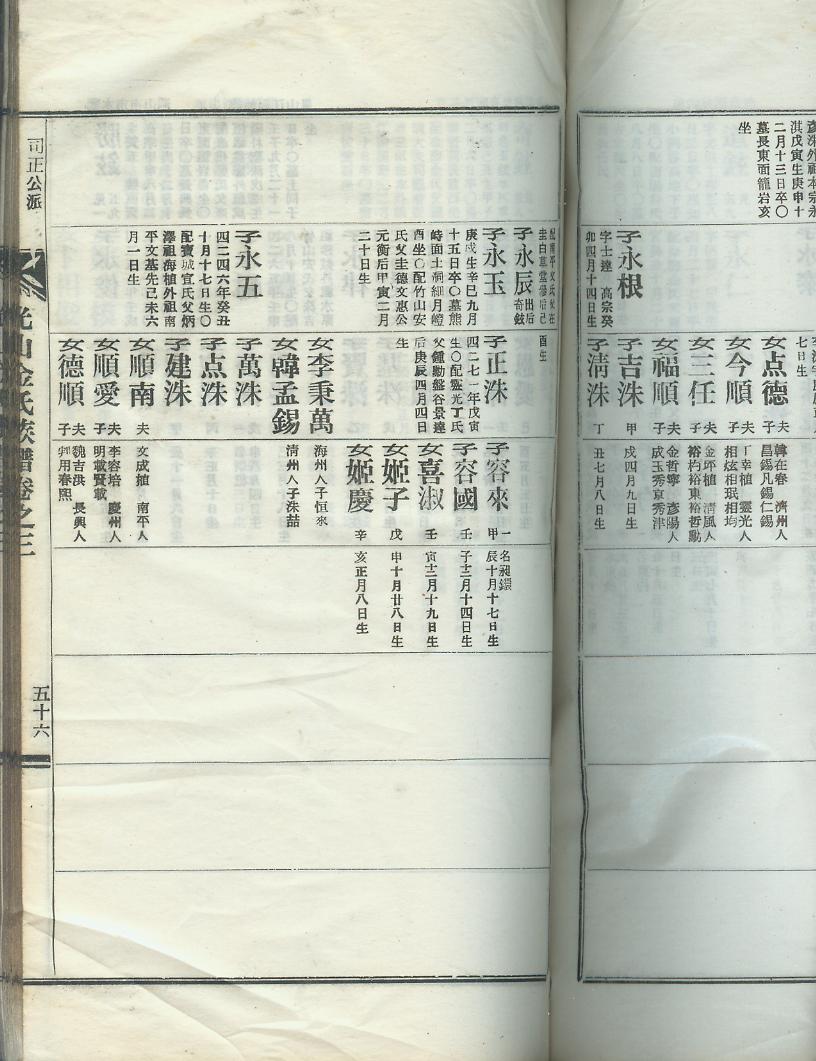 淇戊寅生庚申十
二月十三日卒〇
墓長東面籠岩亥
坐
子永根
字士達 高宗癸
卯四月十四日生
七日生
女点德
夫 韓在春 濟州人
子 昌錫凡錫仁錫
女今順
夫 丁幸植 靈光人
子 相炫相珉相均
女三任
夫 金坏植 清風人
子 裕杓裕東裕哲勳
女福順
夫 金哲寧 彥陽人
子 成玉秀京秀津
子吉洙
甲戌四月九日生
子淸洙
丁丑七月八日生
司正公派
光山金氏族譜卷之三
五十六
子永辰
出后奇鉉
子永玉
庚戌生辛巳九月
十五日卒〇墓熊
峙面土洞細月嶝
酉坐〇配竹山安
氏父圭德文惠公
元衡后甲寅二月
二十日生
子永五
四二四六年癸丑
十月十七日生〇
配寶城宣氏父炳
澤祖海植外祖南
平文基先己未六
月一日生
酉生
子正洙
四二七一年戊寅
生〇配靈光丁氏
父鍾勳盤谷景達
后庚辰四月四日
生
女李秉萬
海州人子恒來
女韓孟錫
清州人子洙喆
子萬洙
子点洙
子建洙
女順南
夫 文成植 南平人
女順愛
夫 李容培 慶州人
子 明載賢載
女德順
夫 魏吉洪 長興人
子 用春熙
子容來
一名昶鐶
甲辰十月十七日生
子容國
壬子三月十四日生
女喜淑
壬寅十二月十九日生
女姬子
戊申十月廿八日生
女姬慶
辛亥正月八日生